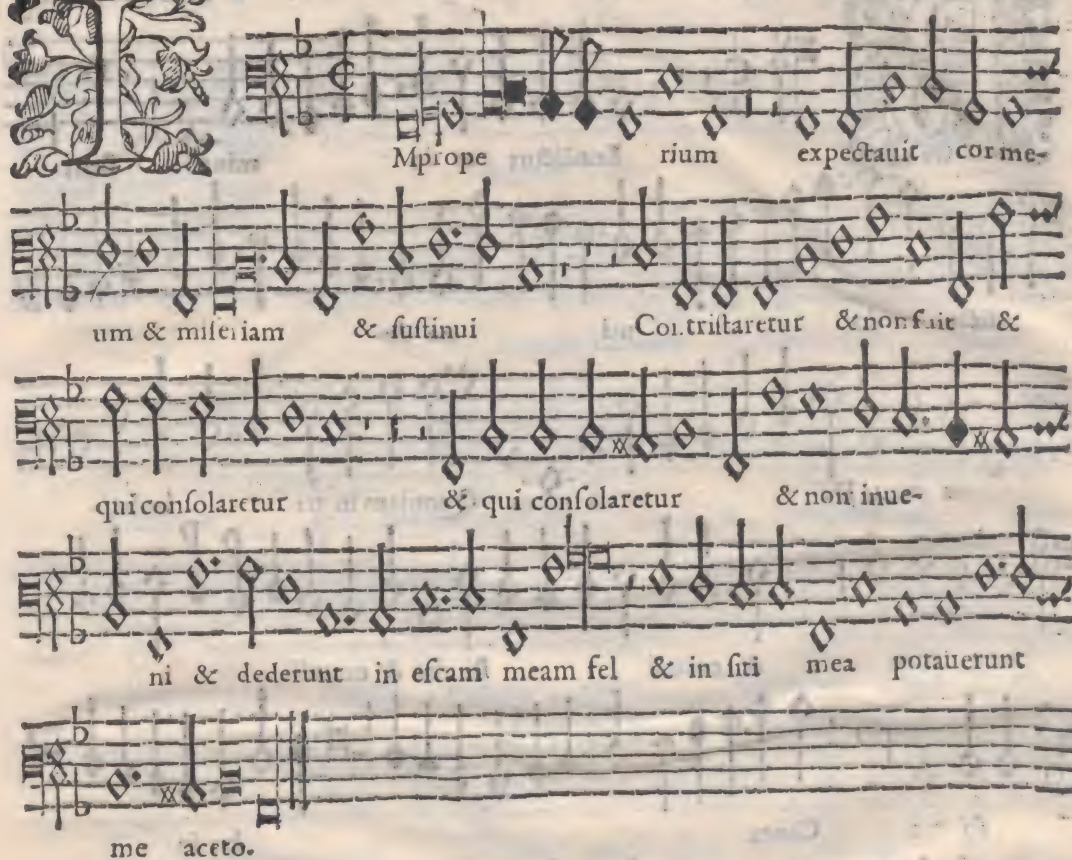 IMprope rium expectauit cor me-
um & miseriam & sustinui Contristaretur & non fuit &
qui consolaretur & qui consolaretur & non inue-
ni & dederunt in escam meam fel & in siti mea potauerunt
me aceto.